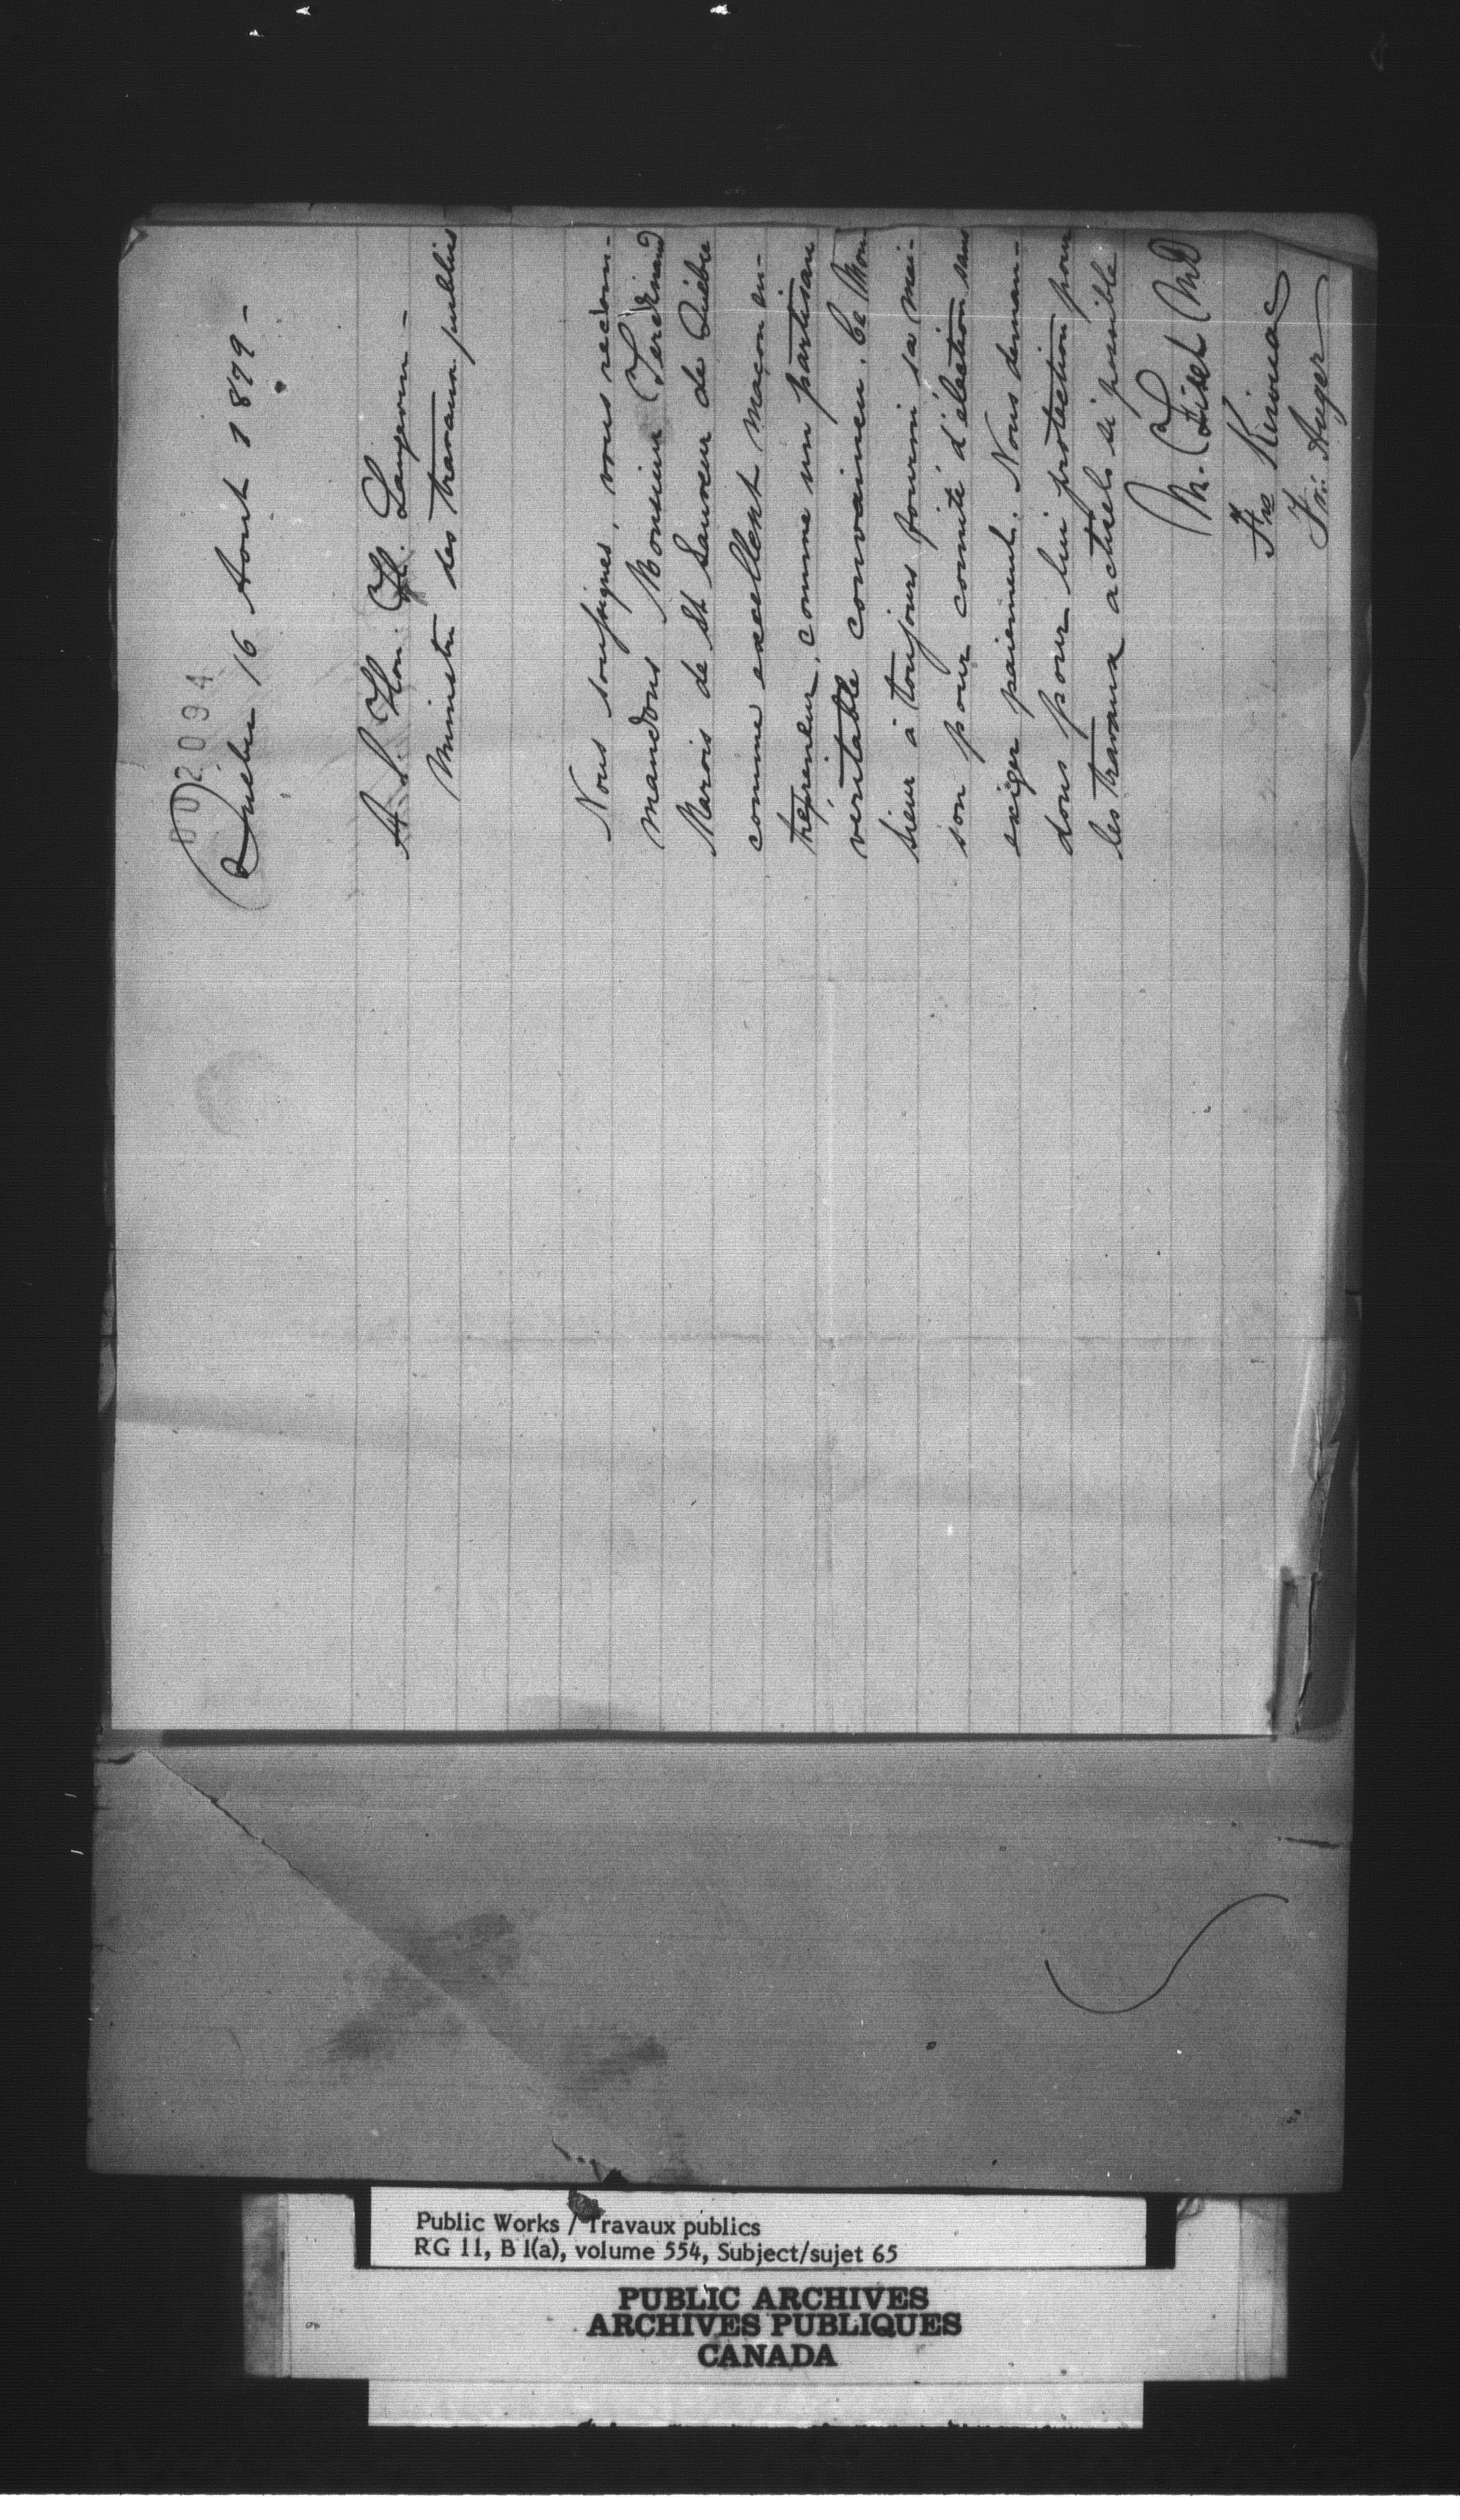 002094
Québec 16 Aout 1879 -
A L'Hon. H. L. Langevin -
Ministre des travaux publics
Nous soussignés, vous recom-
mandons Monsieur Ferdinand
Marois de St Sauveur de Québec
comme excellent maçon en-
trepreneur, comme un partisan
véritable convaincu. Ce Mon-
sieur à toujours fourni sa mai-
son pour comité d'élection sans
exiger paiement. Nous deman-
dons pour lui protection pour
les travaux actuels si possible
M. Fiset MD
Frs Kirouac
Frs Auger
Public Works / Travaux publics
RG 11, B 1(a), volume 554, Subject/sujet 65
PUBLIC ARCHIVES
ARCHIVES PUBLIQUES
CANADA